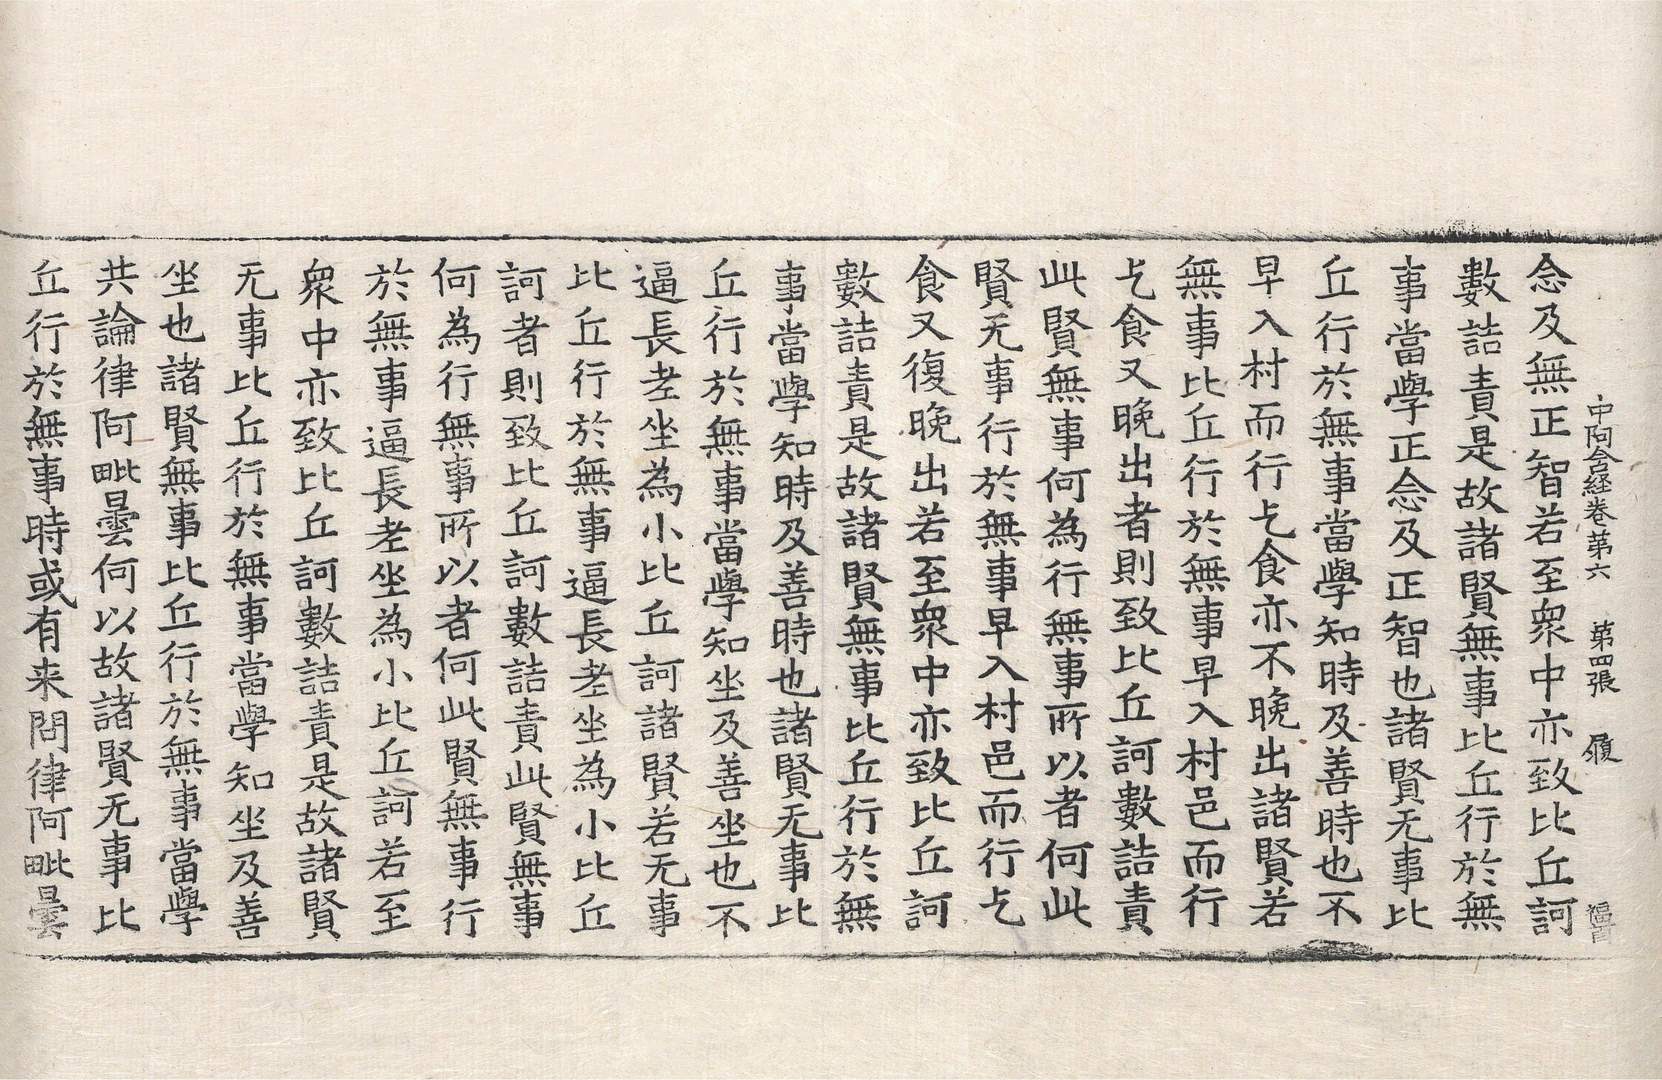 中阿含経卷第六　第四張　履
念及無正智若至衆中亦致比丘訶
數詰責是故諸賢無事比丘行於無
事當學正念及正智也諸賢无事比
丘行於無事當學知時及善時也不
早入村而行乞食亦不晚出諸賢若
無事比丘行於無事早入村邑而行
乞食又晚出者則致比丘訶數詰責
此賢無事何為行無事所以者何此
賢无事行於無事早入村邑而行乞
食又復晚出若至衆中亦致比丘訶
數詰責是故諸賢無事比丘行於無
事當學知時及善時也諸賢无事比
丘行於無事當學知坐及善坐也不
逼長老坐為小比丘訶諸賢若无事
比丘行於無事逼長老坐為小比丘
訶者則致比丘訶數詰責此賢無事
何為行無事所以者何此賢無事行
於無事逼長老坐為小比丘訶若至
衆中亦致比丘訶數詰責是故諸賢
无事比丘行於無事當學知坐及善
坐也諸賢無事比丘行於無事當學
共論律阿毗曇何以故諸賢无事比
丘行於無事時或有来問律阿毗曇